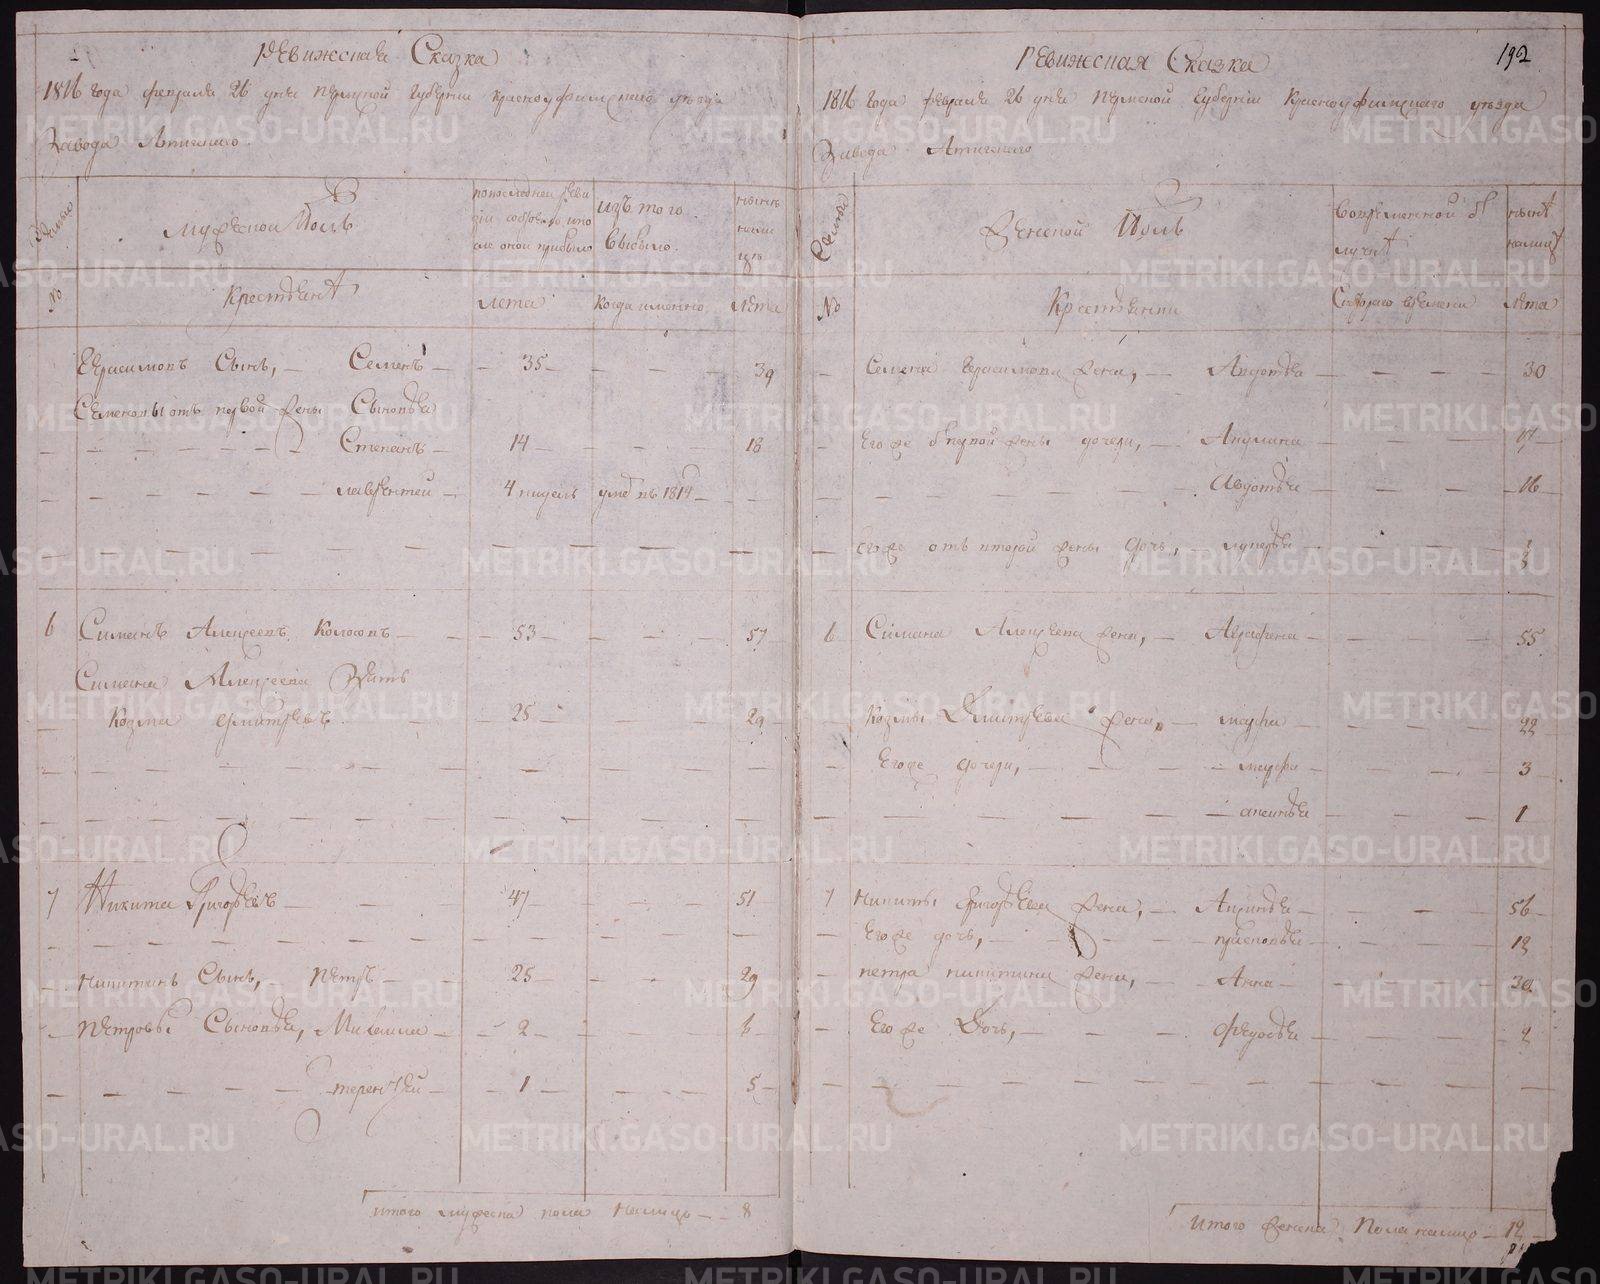 Ревижская Сказка
1816 года февраля 26 дня Пермской Губернии Красноуфимскаго уезда
Завода Атигскаго
Семьи
Мужеской Полъ
по последней реви
зіи состояло и по
сле оной прибыло
изъ того
выбыло
ныне
на ли
цо
№
Крестьяне
лета
когда именно
лета
Герасимовъ Сынъ, — Семенъ — 35 — 39
Семеновы отъ первой жены Сыновья
Степанъ — 14 — 18
лаврентей — 4 недель умре въ 1814 —
6 Симанъ Алексеевъ Колосовъ — 53 — 57
Симана Алексеева Зять
Козма Дмитревъ 25 — 29
7 Никита Григорьевъ — 47 — 51
никитинъ Сынъ, Петръ — 25 — 29
Петровы Сыновья, Михаила — 2 — 6
терентей — 1 — 5
итого мужеска пола налицо — 8
Ревижская Сказка
192
1816 года февраля 26 дня Пермской Губернии Красноуфимскаго уезда
Завода Атигскаго
Семьи
Женской Полъ
во временной от
лучке
ныне
налицо
№
Крестьянки
Съ котораго времени
лета
Семена Герасимова жена, — Авдотья — 30
Его же от первой жены дочери, — Акулина — 17
Авдотья — 16
Его же отъ второй жены дочь, — лукерья 3
6 Симана Алексеева жена, — Аграфена — 55
Козмы Дмитрева жена, — марфа — 22
Его же дочери, — марфа — 3
аксинья — 1
7 никиты Григорьева жена, — Аксинья — 56
Его же дочь, — прасковья — 12
петра никитина жена, — Анна — 30
Его же Дочь, — Федосья — 2
Итого женска Пола налицо — 12
METRIKI.GASO-URAL.RU